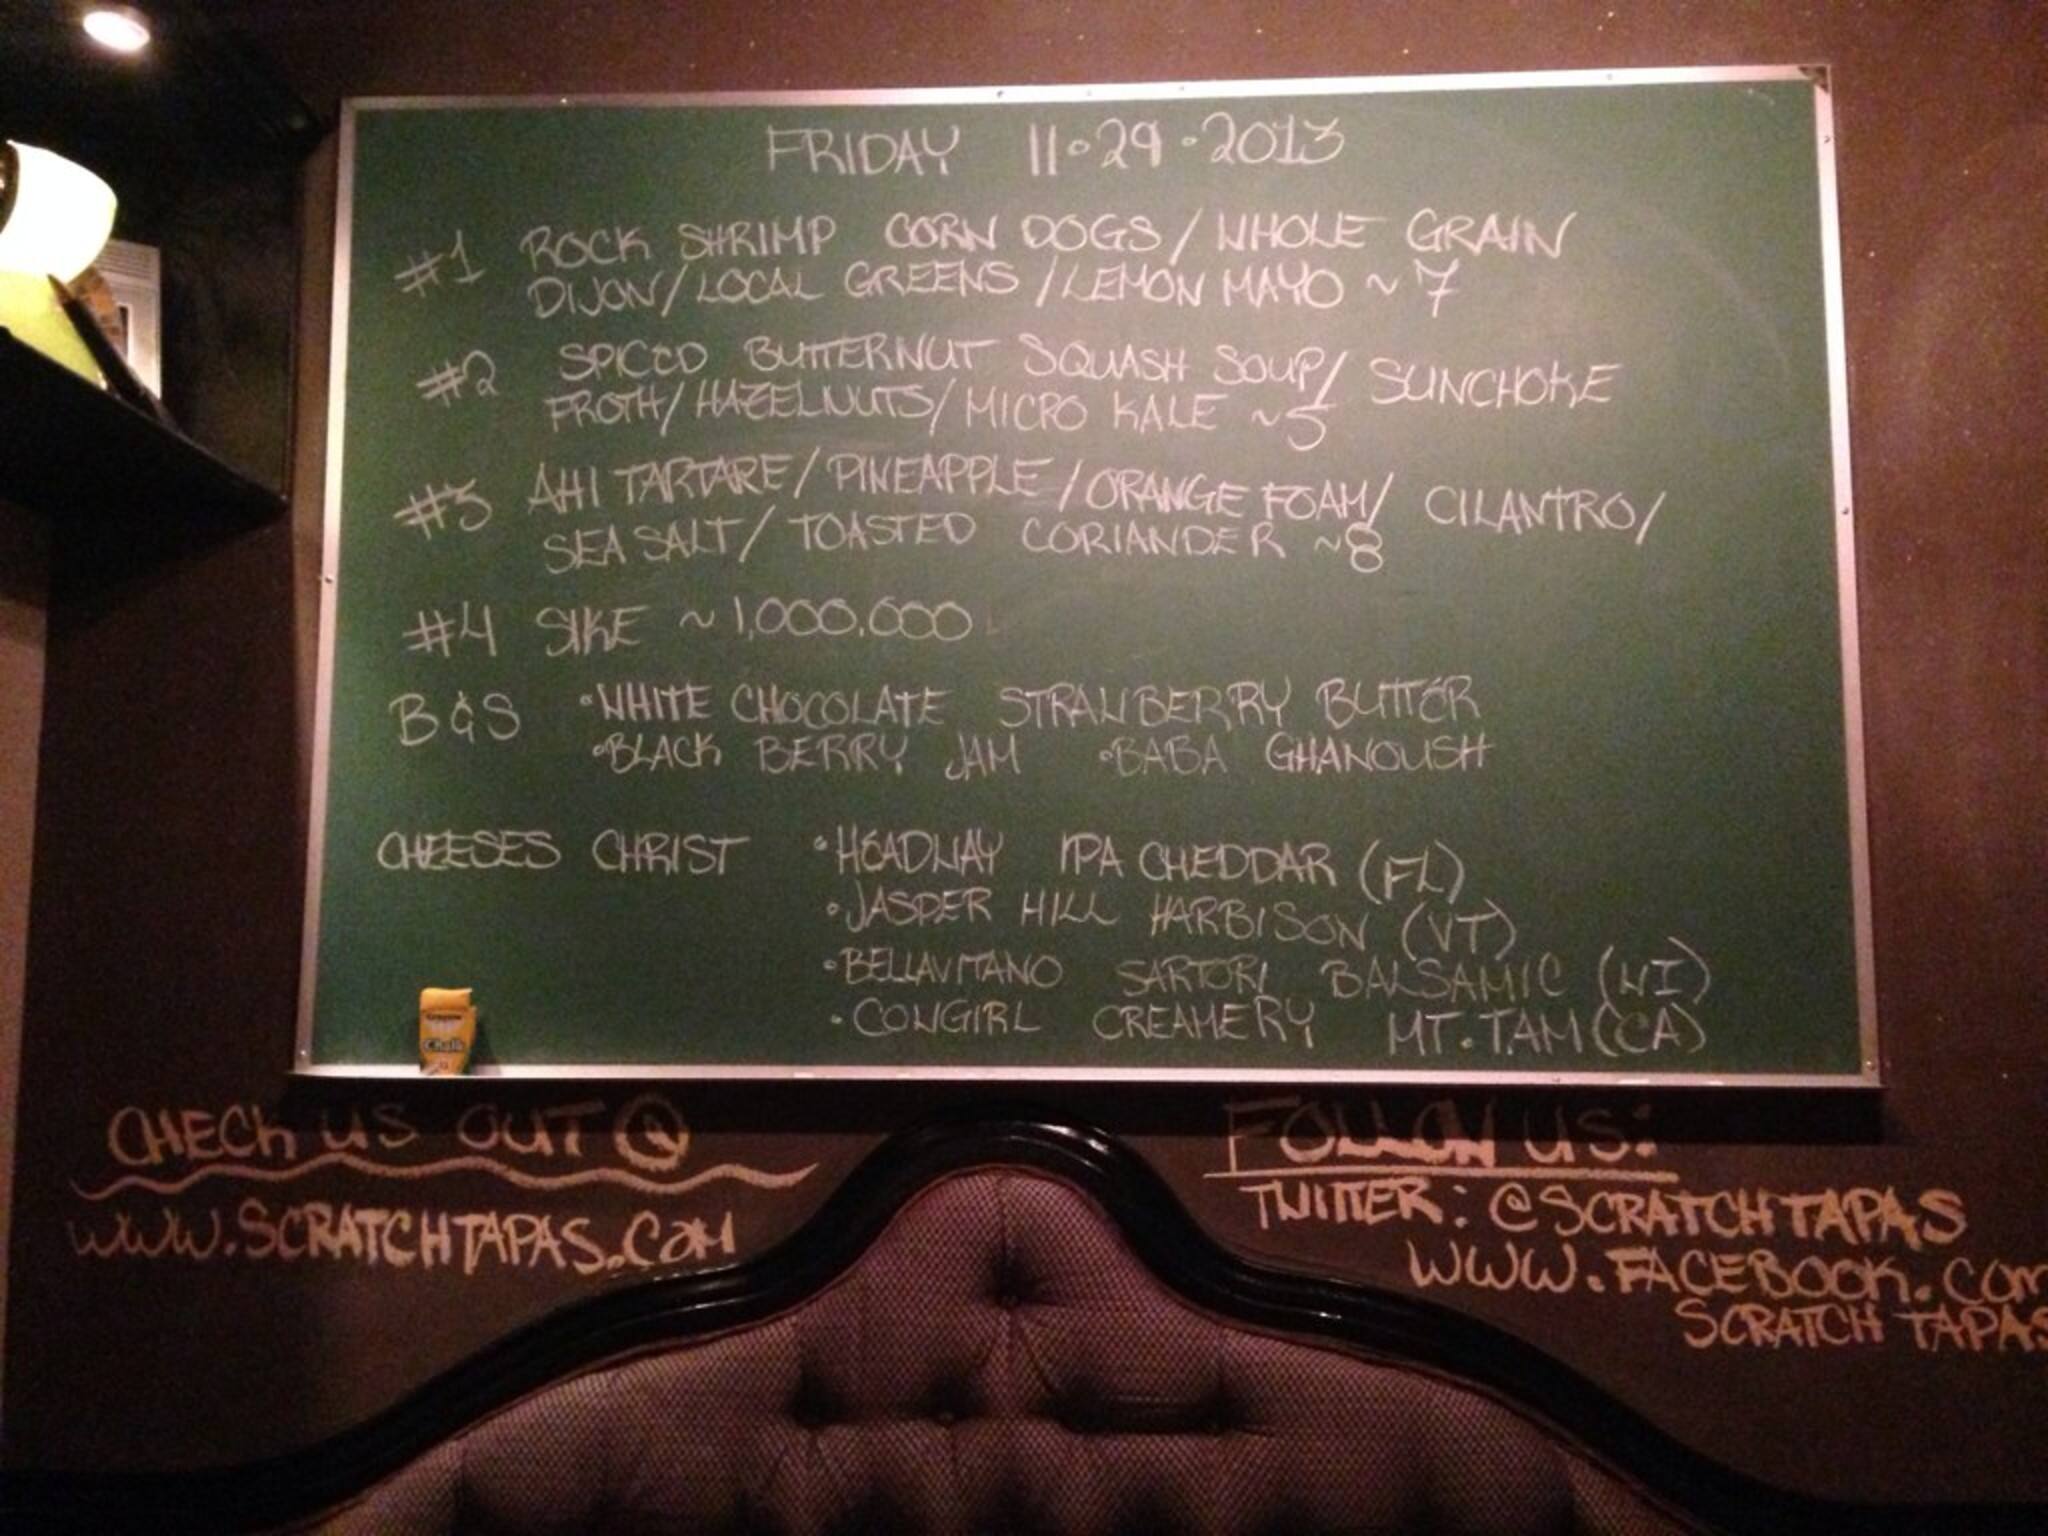 FRIDAY 11.29.2013
#1 ROCK SHRIMP CORN DOGS / WHOLE GRAIN
DIJON / LOCAL GREENS / LEMON MAYO ~ 7
#2 SPICED BUTTERNUT SQUASH SOUP / SUNCHOKE
FROTH / HAZELNUTS / MICRO KALE ~5
#3 AHI TARTARE / PINEAPPLE / ORANGE FOAM / CILANTRO /
SEA SALT / TOASTED CORIANDER ~8
#4 SIKE ~ 1,000,000
B & S • WHITE CHOCOLATE STRAWBERRY BUTTER
• BLACK BERRY JAM • BABA GHANOUSH
CHEESES CHRIST • HEADWAY IPA CHEDDAR (FL)
• JASPER HILL HARBISON (VT)
• BELLAVITANO SARTORI BALSAMIC (WI)
• COWGIRL CREAMERY MT. TAM (CA)
Chalk
CHECK US OUT @
WWW.SCRATCHTAPAS.COM
FOLLOW US:
TWITTER: @SCRATCHTAPAS
WWW.FACEBOOK.COM
SCRATCH TAPAS